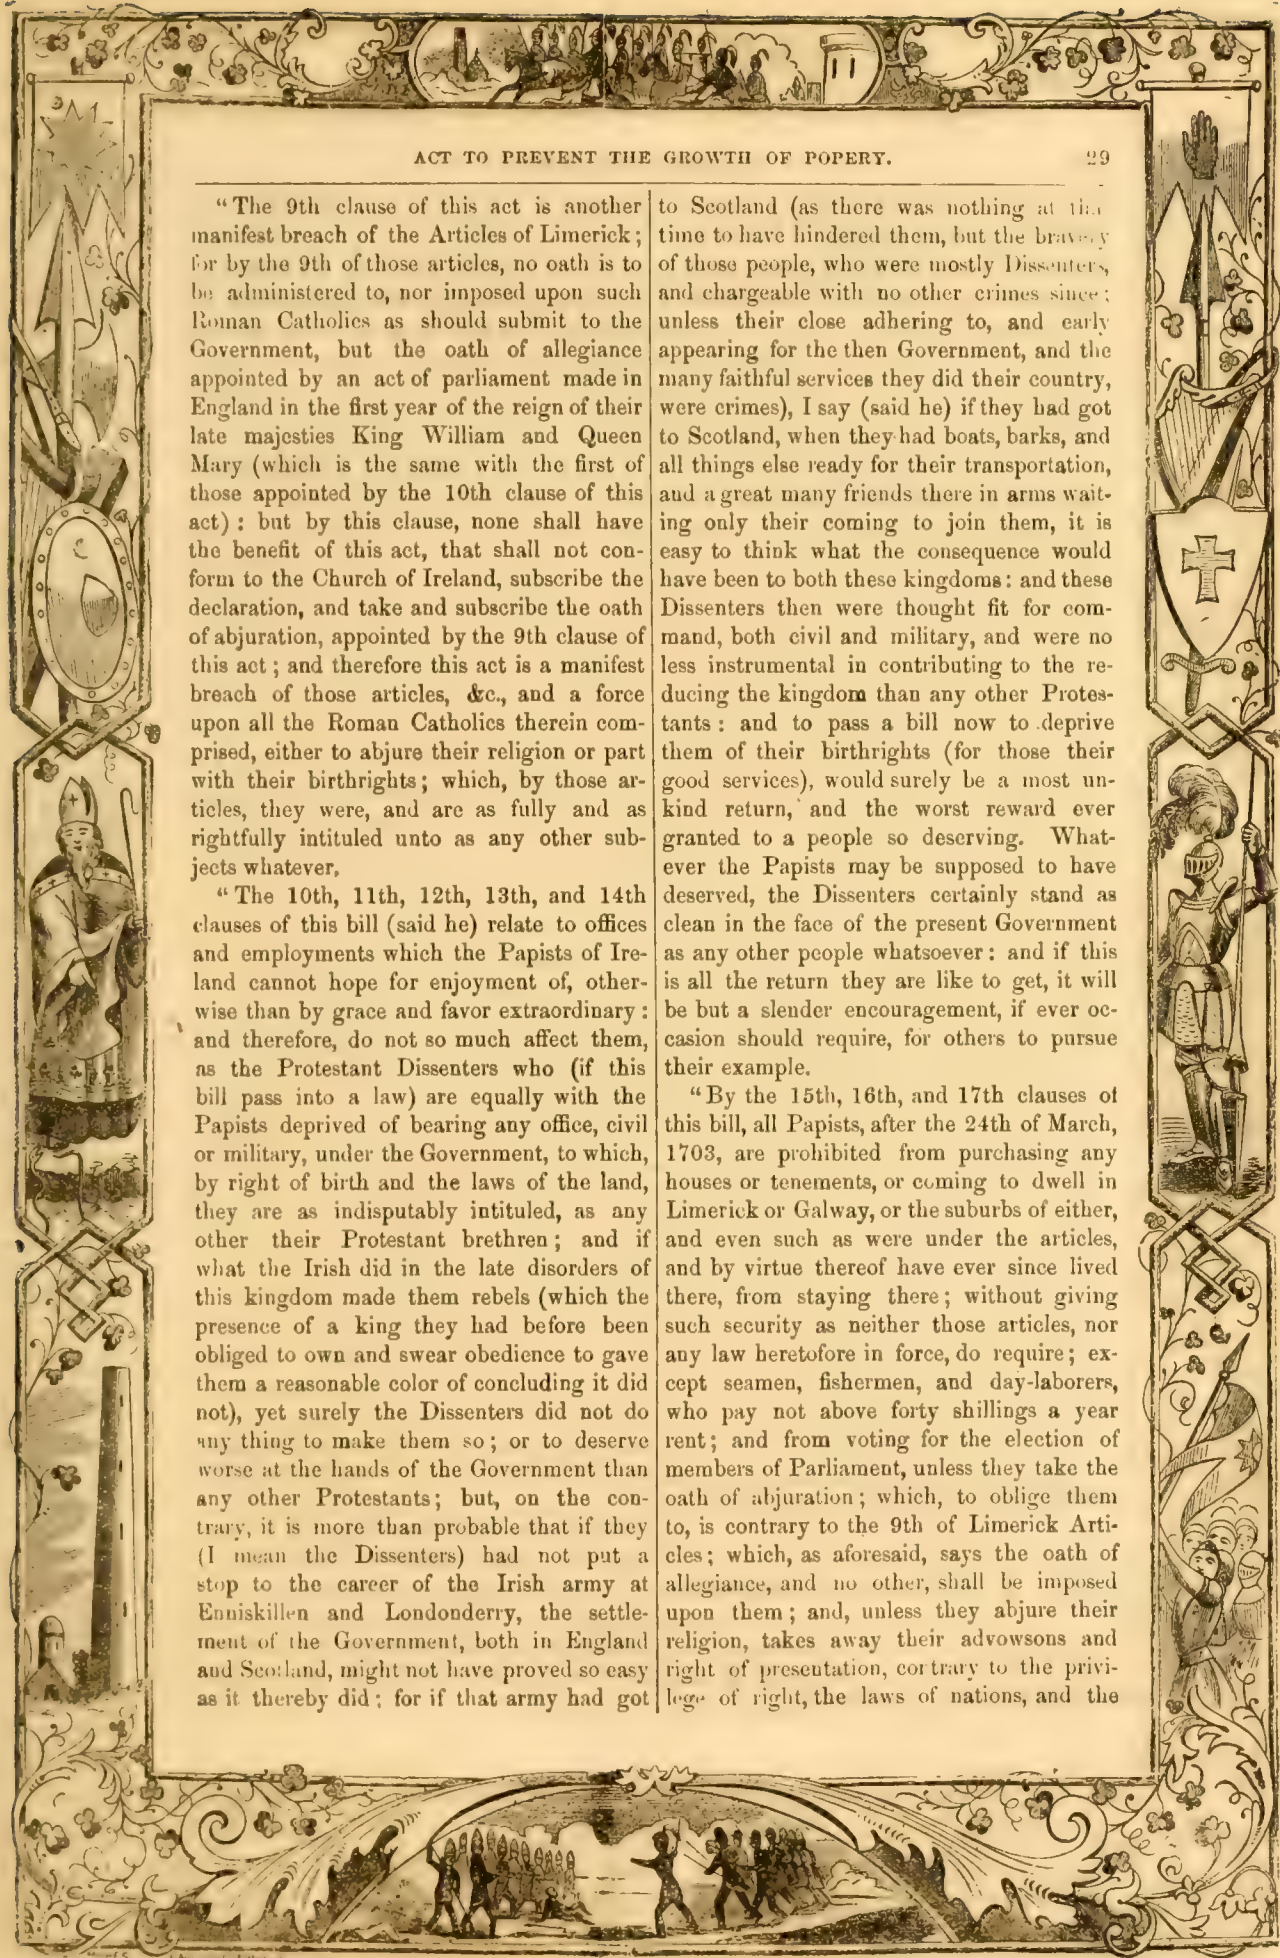 ACT TO PREVENT THE GROWTH OF POPERY. 29
"The 9th clause of this act is another
manifest breach of the Articles of Limerick;
for by the 9th of those articles, no oath is to
be administered to, nor imposed upon such
Roman Catholics as should submit to the
Government, but the oath of allegiance
appointed by an act of parliament made in
England in the first year of the reign of their
late majesties King William and Queen
Mary (which is the same with the first of
those appointed by the 10th clause of this
act): but by this clause, none shall have
the benefit of this act, that shall not con-
form to the Church of Ireland, subscribe the
declaration, and take and subscribe the oath
of abjuration, appointed by the 9th clause of
this act; and therefore this act is a manifest
breach of those articles, &c., and a force
upon all the Roman Catholics therein com-
prised, either to abjure their religion or part
with their birthrights; which, by those ar-
ticles, they were, and are as fully and as
rightfully intituled unto as any other sub-
jects whatever.
"The 10th, 11th, 12th, 13th, and 14th
clauses of this bill (said he) relate to offices
and employments which the Papists of Ire-
land cannot hope for enjoyment of, other-
wise than by grace and favor extraordinary:
and therefore, do not so much affect them,
as the Protestant Dissenters who (if this
bill pass into a law) are equally with the
Papists deprived of bearing any office, civil
or military, under the Government, to which,
by right of birth and the laws of the land,
they are as indisputably intituled, as any
other their Protestant brethren; and if
what the Irish did in the late disorders of
this kingdom made them rebels (which the
presence of a king they had before been
obliged to own and swear obedience to gave
them a reasonable color of concluding it did
not), yet surely the Dissenters did not do
any thing to make them so; or to deserve
worse at the hands of the Government than
any other Protestants; but, on the con-
trary, it is more than probable that if they
(I mean the Dissenters) had not put a
stop to the career of the Irish army at
Enniskillen and Londonderry, the settle-
ment of the Government, both in England
and Scotland, might not have proved so easy
as it thereby did; for if that army had got
to Scotland (as there was nothing at that
time to have hindered them, but the bravery
of those people, who were mostly Dissenters,
and chargeable with no other crimes since;
unless their close adhering to, and early
appearing for the then Government, and the
many faithful services they did their country,
were crimes), I say (said he) if they had got
to Scotland, when they had boats, barks, and
all things else ready for their transportation,
and a great many friends there in arms wait-
ing only their coming to join them, it is
easy to think what the consequence would
have been to both these kingdoms: and these
Dissenters then were thought fit for com-
mand, both civil and military, and were no
less instrumental in contributing to the re-
ducing the kingdom than any other Protes-
tants: and to pass a bill now to deprive
them of their birthrights (for those their
good services), would surely be a most un-
kind return, and the worst reward ever
granted to a people so deserving. What-
ever the Papists may be supposed to have
deserved, the Dissenters certainly stand as
clean in the face of the present Government
as any other people whatsoever: and if this
is all the return they are like to get, it will
be but a slender encouragement, if ever oc-
casion should require, for others to pursue
their example.
"By the 15th, 16th, and 17th clauses of
this bill, all Papists, after the 24th of March,
1703, are prohibited from purchasing any
houses or tenements, or coming to dwell in
Limerick or Galway, or the suburbs of either,
and even such as were under the articles,
and by virtue thereof have ever since lived
there, from staying there; without giving
such security as neither those articles, nor
any law heretofore in force, do require; ex-
cept seamen, fishermen, and day-laborers,
who pay not above forty shillings a year
rent; and from voting for the election of
members of Parliament, unless they take the
oath of abjuration; which, to oblige them
to, is contrary to the 9th of Limerick Arti-
cles; which, as aforesaid, says the oath of
allegiance, and no other, shall be imposed
upon them; and, unless they abjure their
religion, takes away their advowsons and
right of presentation, contrary to the privi-
lege of right, the laws of nations, and the